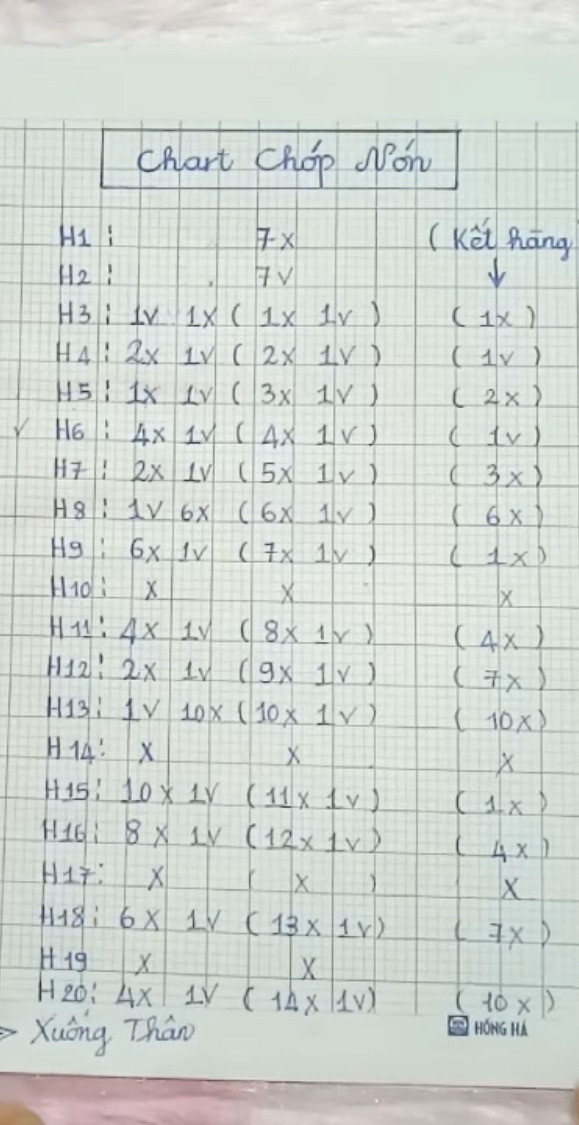 Chart Chóp Nón
H1 : 7x ( Kết hàng
H2 : 7v ↓
H3 : 1v 1x ( 1x 1v ) ( 1x )
H4 : 2x 1v ( 2x 1v ) ( 1v )
H5 : 1x 1v ( 3x 1v ) ( 2x )
✓ H6 : 4x 1v ( 4x 1v ) ( 1v )
H7 : 2x 1v ( 5x 1v ) ( 3x )
H8 : 1v 6x ( 6x 1v ) ( 6x )
H9 : 6x 1v ( 7x 1v ) ( 1x )
H10 : x x x
H11 : 4x 1v ( 8x 1v ) ( 4x )
H12 : 2x 1v ( 9x 1v ) ( 7x )
H13 : 1v 10x ( 10x 1v ) ( 10x )
H14 : x x x
H15 : 10x 1v ( 11x 1v ) ( 1x )
H16 : 8x 1v ( 12x 1v ) ( 4x )
H17 : x ( x ) x
H18 : 6x 1v ( 13x 1v ) ( 7x )
H19 x x
H20 : 4x 1v ( 14x 1v ) ( 10x )
> Xuống Thân HỒNG HÀ